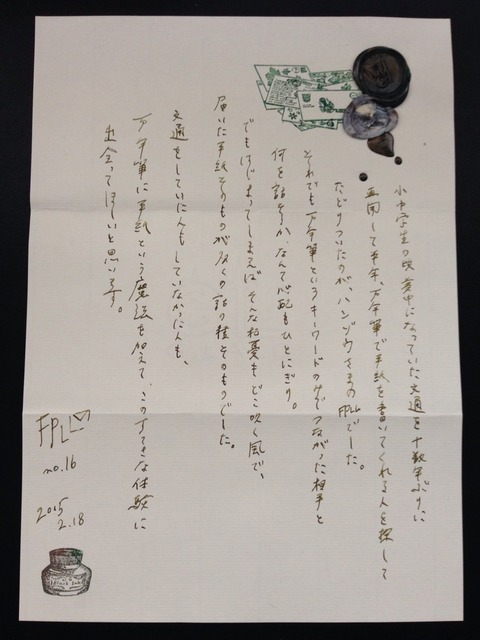 小中学生の頃夢中になっていた文通を十数年ぶりに
再開して半年、万年筆で手紙を書いてくれる人を探して
たどりついたのが、ハンゾウさまのFPLLでした。
それでも万年筆というキーワードのみでつながった相手と
何を話そうか、なんて心配もひとにぎり。
でもはじまってしまえばそんな杞憂もどこ吹く風で、
届いた手紙そのものが多くの話の種そのものでした。
文通をしていた人もしていなかった人も、
万年筆に手紙という魔法を加えて、このすてきな体験に
出会ってほしいと思います。
FPLL
no.16
2015
2.18